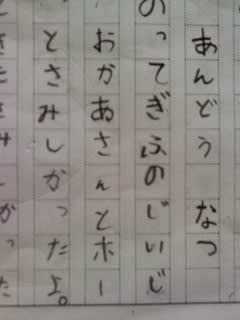 あんどう なつ
のってぎふのじいじ
おかあさんとホー
とさみしかったよ。